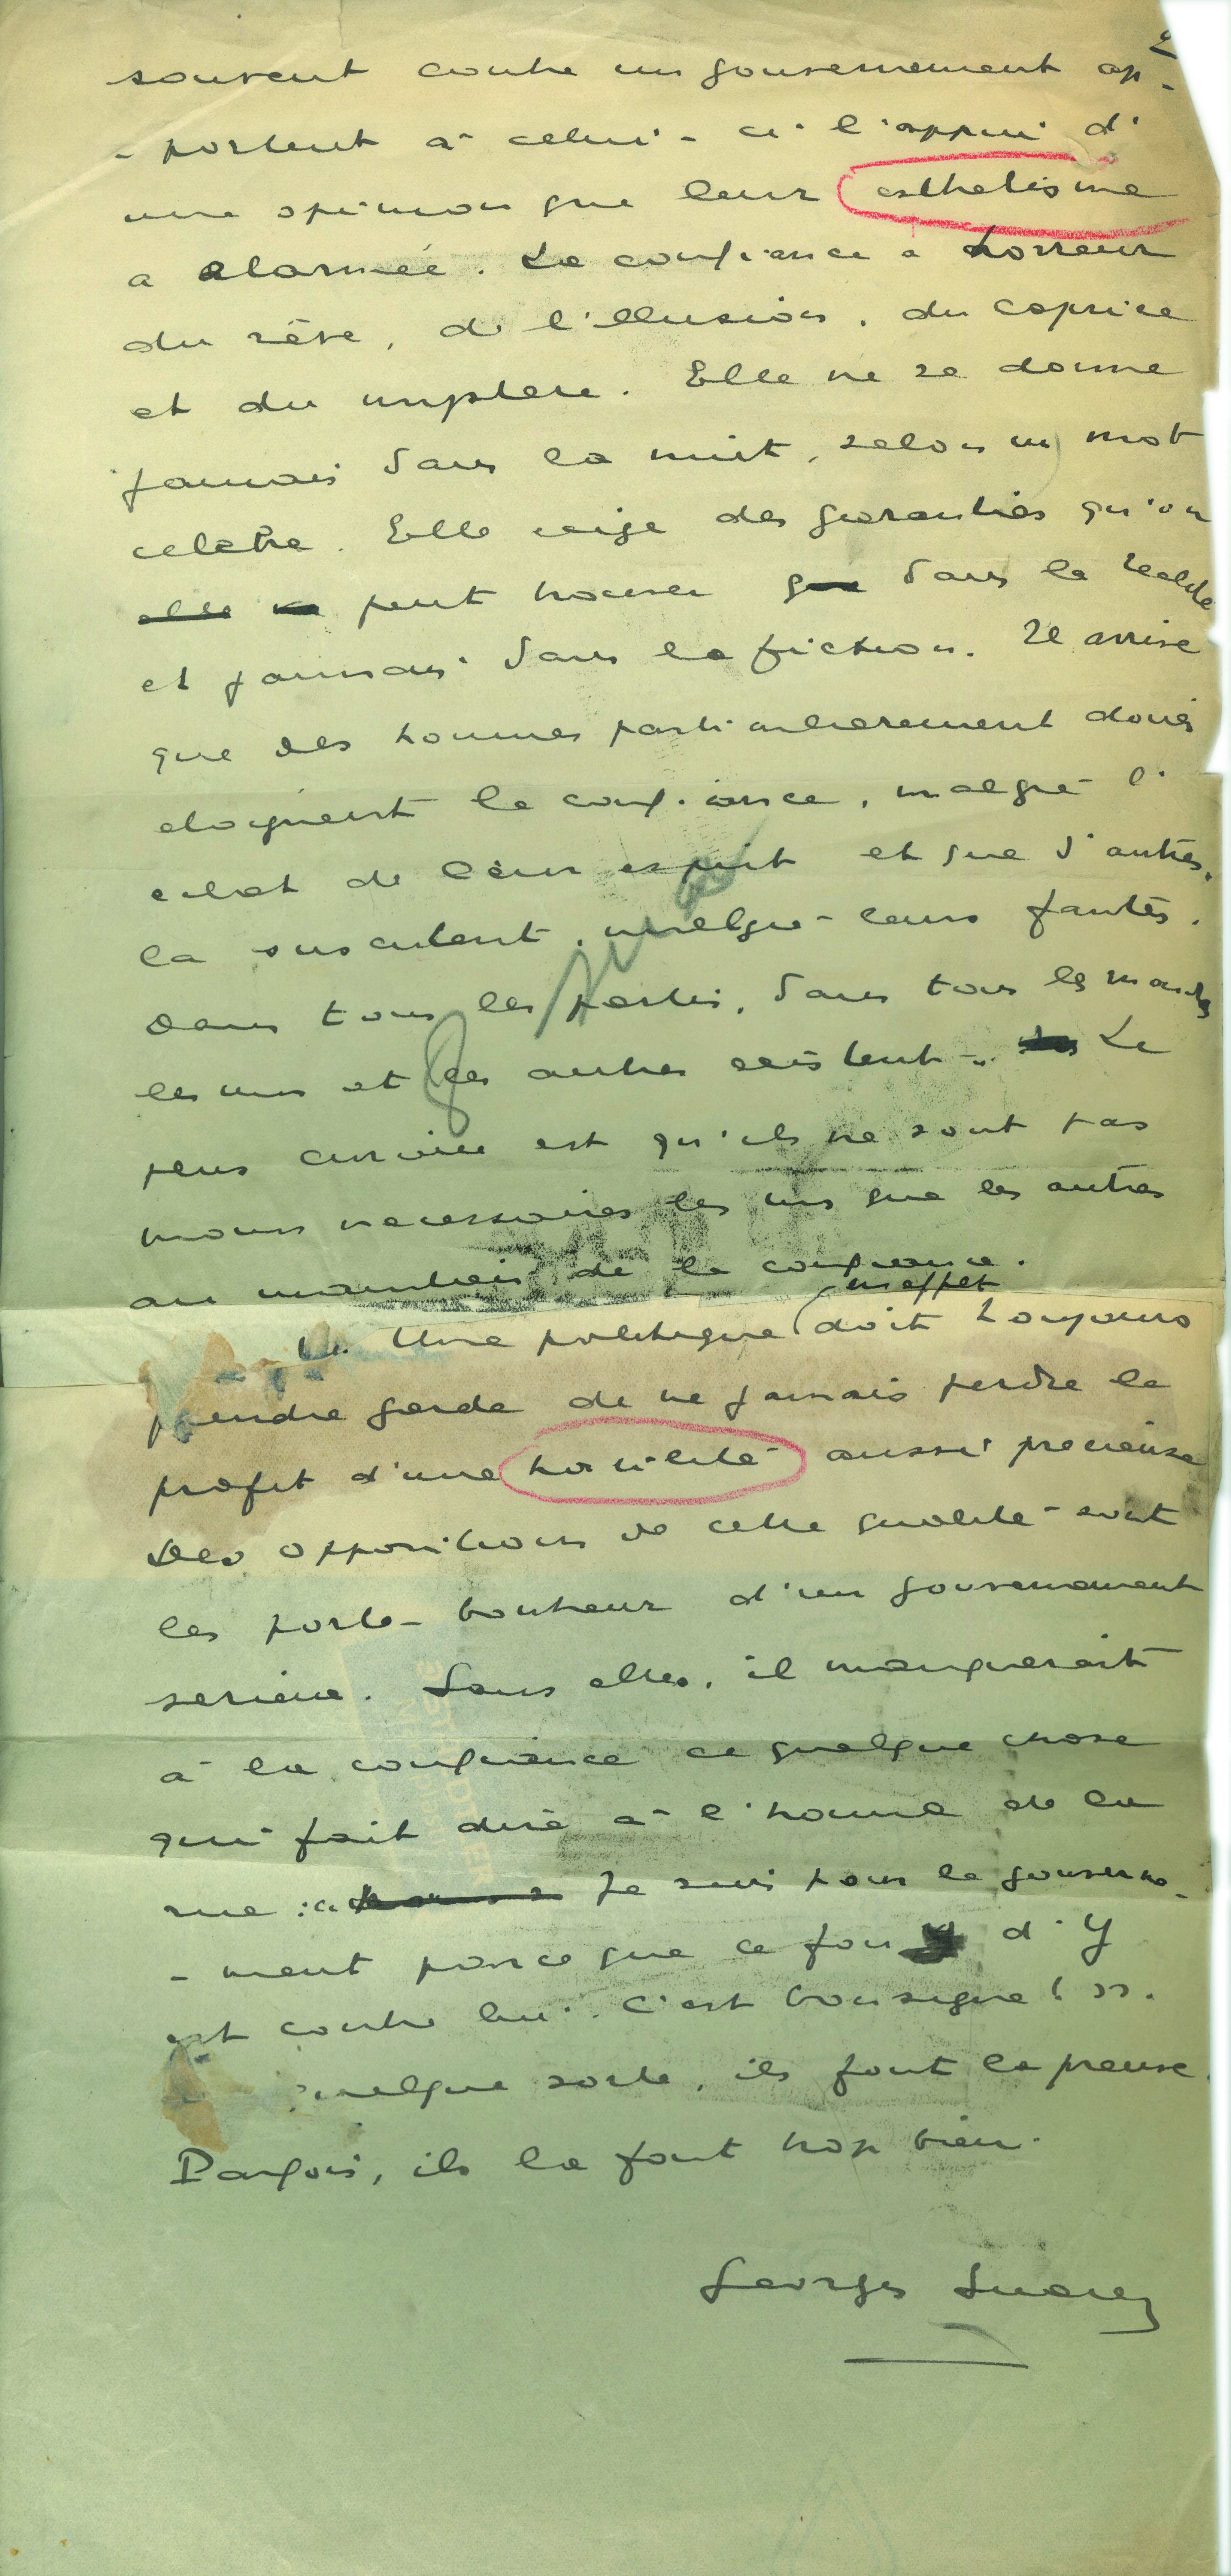 2
souvent contre un gouvernement ap-
-portent à celui-ci l'appui d'
une opinion que leur esthetisme
a alarmée. La confiance a horreur
du rêve, de l'illusion, du caprice
et du mystere. Elle ne se donne
jamais dans la nuit, selon un mot
celebre. Elle exige des garanties qu'on
elle ne peut trouver que dans la realite
et jamais dans la fiction. Il arrive
que des hommes particulierement doués
eloignent la confiance, malgré l'
eclat de leur esprit et que d'autres,
la suscitent, malgré leurs fautes.
Dans tous les partis, dans tous les mondes
les uns et les autres existent. Le
plus curieux est qu'ils ne sont pas
moins necessaires les uns que les autres
au maintien de la confiance.
en effet
Une politique doit toujours
prendre garde de ne jamais perdre le
profit d'une hostilité aussi precieuse
Des oppositions de cette qualité sont
les porte-bonheur d'un gouvernement
serieux. Sans elles, il manquerait
à la confiance ce quelque chose
qui fait dire à l'homme de la
rue : « Je suis pour le gouverne-
-ment parce que ce fou d'Y
est contre lui. C'est bon signe! ».
quelque sorte, ils font la preuve.
Parfois, ils la font trop bien.
Georges Suarez